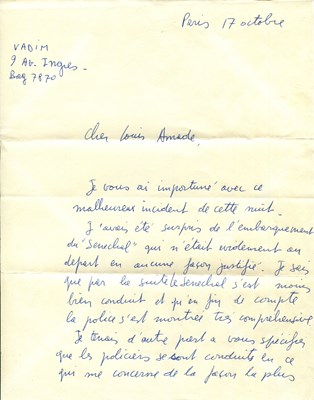 Paris 17 octobre
VADIM
9 Av. Ingres -
Bag 7870
Cher Louis Amade,
Je vous ai importuné avec ce
malheureux incident de cette nuit.
J'avais été surpris de l'embarquement
du "Senechal" qui n'était evidement au
depart en aucune façon justifié. Je sais
que par la suite le Senechal s'est moins
bien conduit et qu'en fin de compte
la police s'est montrée tres comprehensive
Je tenais d'autre part a vous spécifier
que les policiers se sont conduits en ce
qui me concerne de la façon la plus